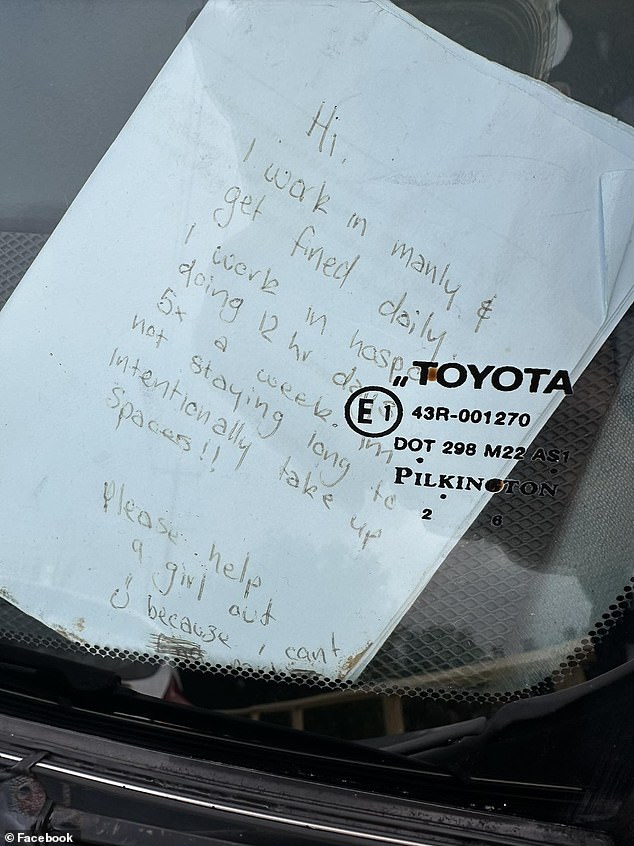 Hi.
I work in manly &
get fined daily.
I work in hospo
doing 12 hr days
5x a week. Im
not staying long to
intentionally take up
spaces!!
Please help
a girl out
because I cant
TOYOTA
E1 43R-001270
DOT 298 M22 AS1
PILKINGTON
2 6
© Facebook